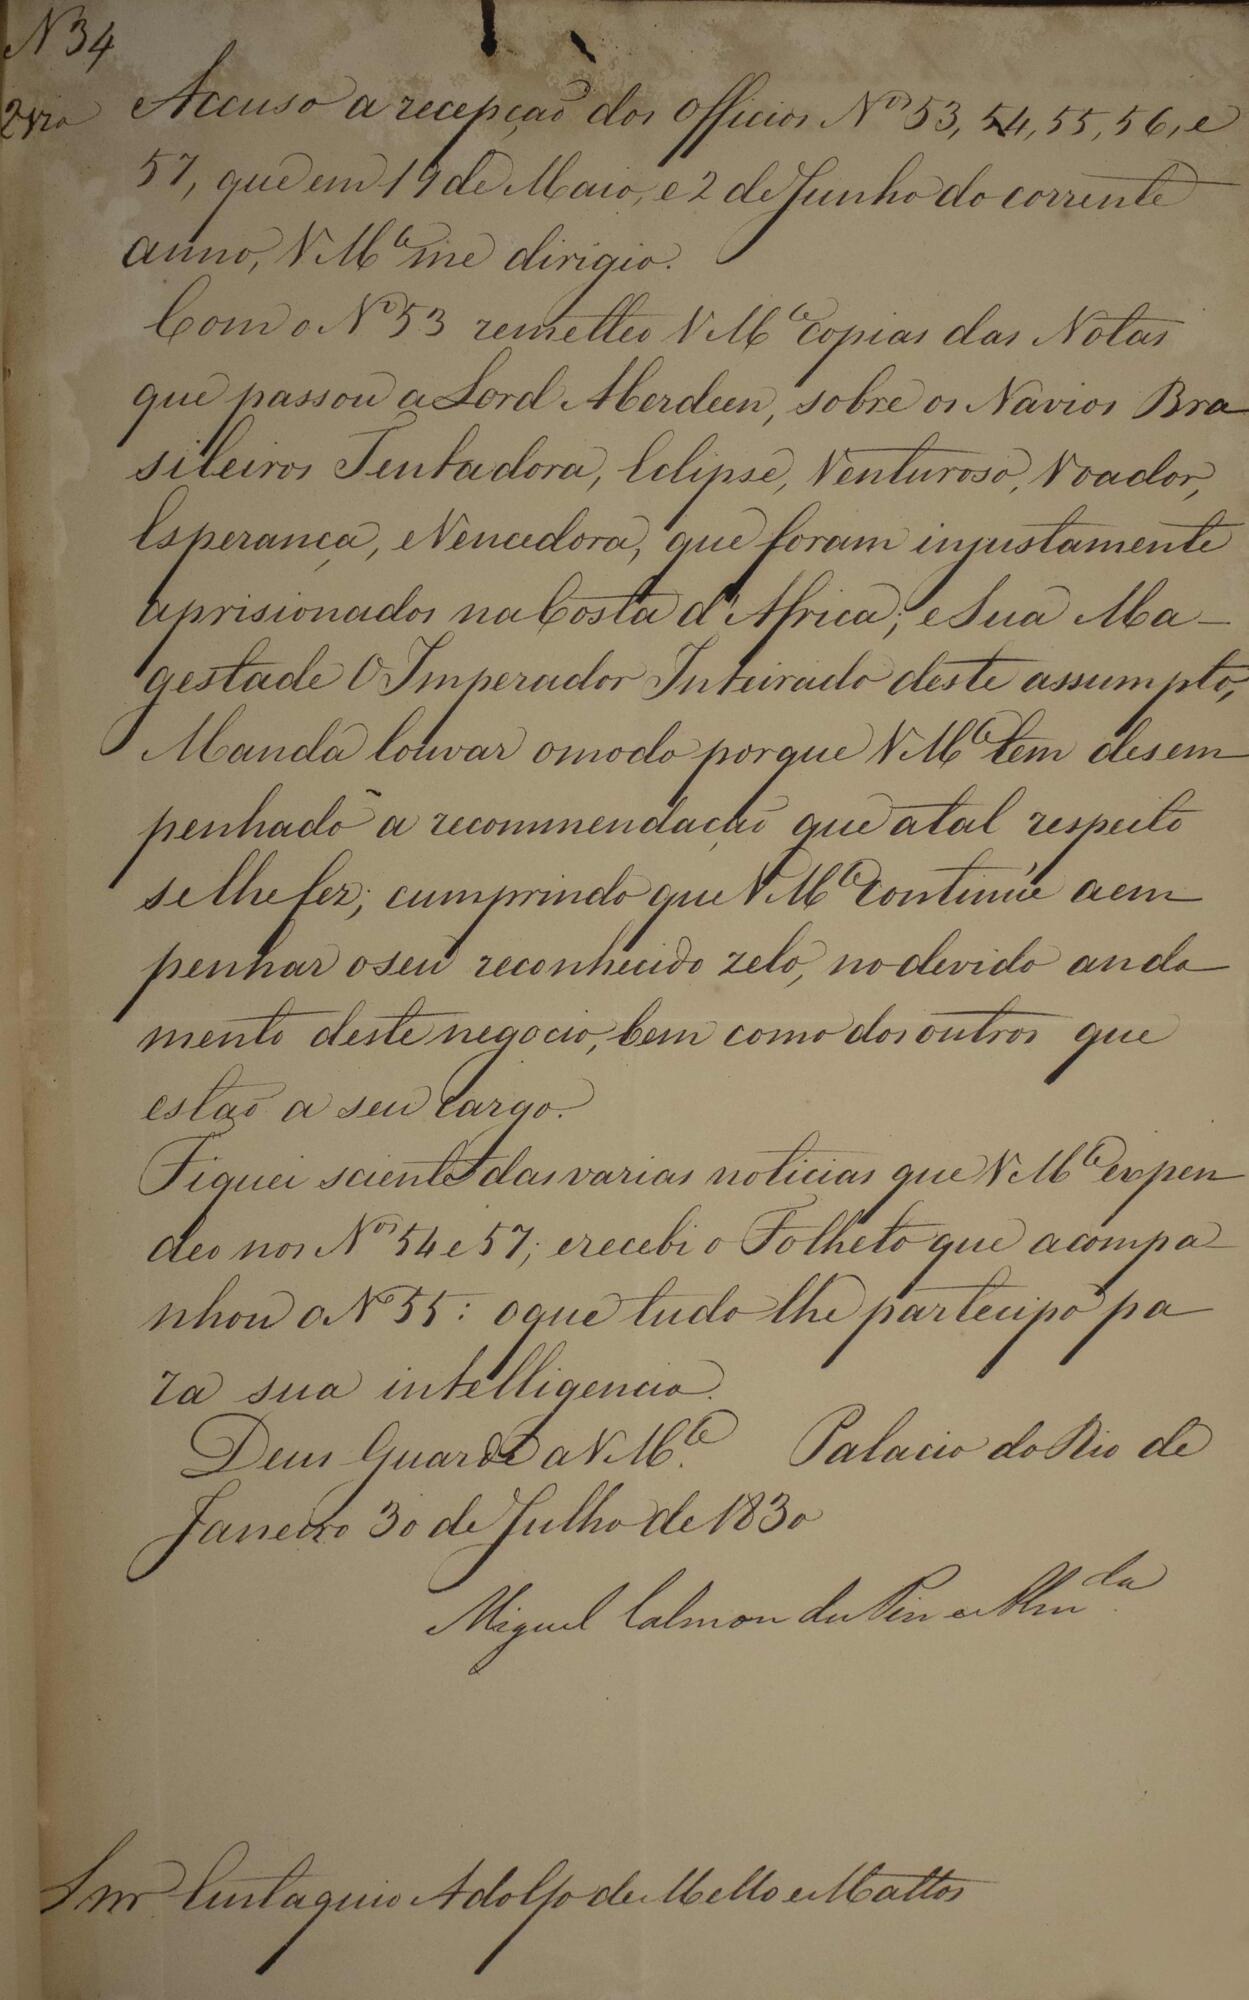 N 34
2ª via
Accuso a recepção dos Officios Nos 53, 54, 55, 56, e
57, que em 19 de Maio, e 2 de Junho do corrente
anno, V Mce me dirigio.
Com o No 53 remetteo V Mce copias das Notas
que passou a Lord Aberdeen, sobre os Navios Bra
sileiros Tentadora, Eclipse, Venturoso, Voador,
Esperança, e Vencedora, que foram injustamente
aprisionados na Costa d'Africa; e Sua Ma-
gestade O Imperador Inteirado deste assumpto,
Manda louvar o modo porque V Mce tem desem
penhado a recommendação que a tal respeito
se lhe fez; cumprindo que V Mce continúe a em
penhar o seu reconhecido zelo, no devido anda
mento deste negocio, bem como dos outros que
estão a seu cargo.
Fiquei sciente das varias noticias que V Mce expen
deo nos Nos 54 e 57; e recebi o Folheto que acompa
nhou o No 55: o que tudo lhe partecipo pa
ra sua intelligencia.
Deus Guarde a V Mce. Palacio do Rio de
Janeiro 30 de Julho de 1830
Miguel Calmon du Pin e Almda
Snr Eustaquio Adolfo de Mello e Mattos